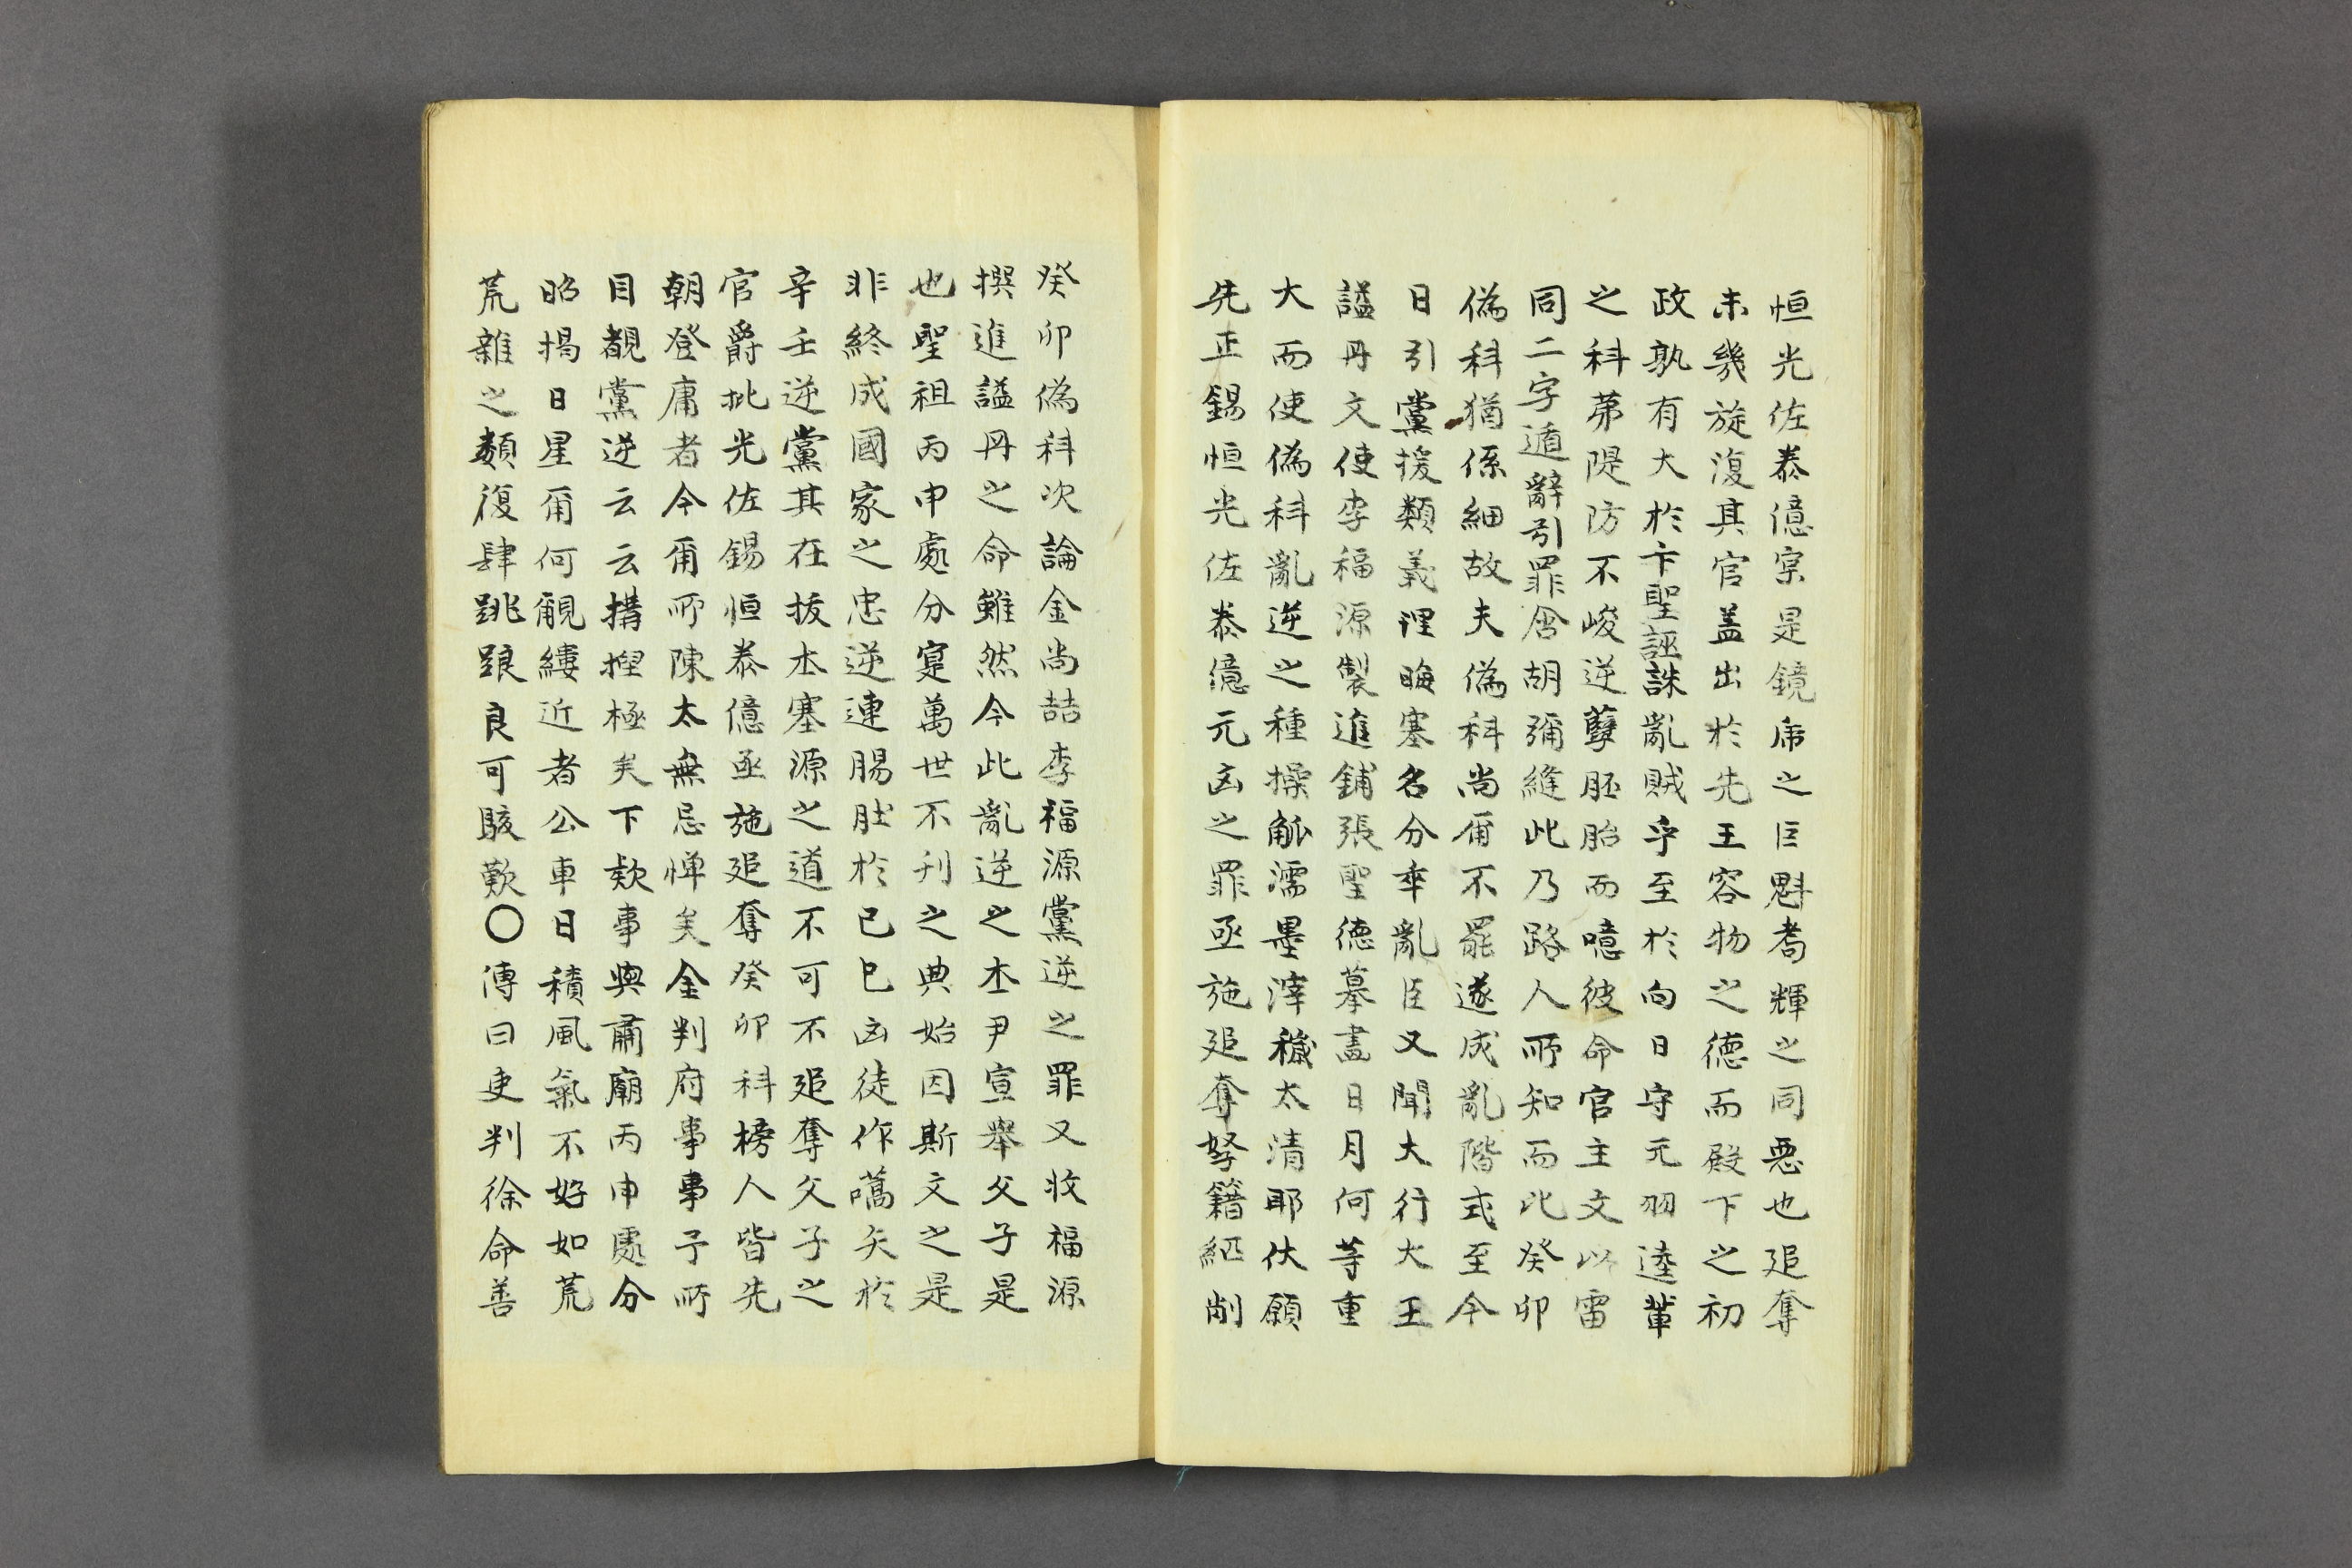 恒光佐泰億宗是鏡席之巨魁耉輝之同惡也追奪
未幾旋復其官盖出於先王容物之德而殿下之初
政孰有大於卞聖誣誅亂賊乎至於向日守元羽逵輩
之科第隄防不峻逆孽胚胎而噫彼命官主文以雷
同二字遁辭引罪含胡彌縫此乃路人所知而此癸卯
僞科猶係細故夫僞科尚爾不罷遂成亂階式至今
日引黨援類義理晦塞名分率亂臣又聞大行大王
諡冊文使李福源製進鋪張聖德摹畫日月何等重
大而使僞科亂逆之種操觚濡墨滓穢太清耶伏願
先正錫恒光佐泰億元凶之罪亟施追奪孥籍繼削
癸卯僞科次論金尚喆李福源黨逆之罪又收福源
撰進諡冊之命雖然今此亂逆之本尹宣擧父子是
也聖祖丙申處分寔萬世不刊之典始因斯文之是
非終成國家之忠逆連腸肚於己巳凶徒作蔿矢於
辛壬逆黨其在拔本塞源之道不可不追奪父子之
官爵批光佐錫恒泰億亟施追奪癸卯科榜人皆先
朝登庸者今爾所陳太無忌憚矣金判府事事予所
目覩黨逆云云搆捏極矣下款事與肅廟丙申處分
昭揭日星爾何覼縷近者公車日積風氣不好如荒
荒雜之類復肆跳踉良可駭歎〇傳曰吏判徐命善